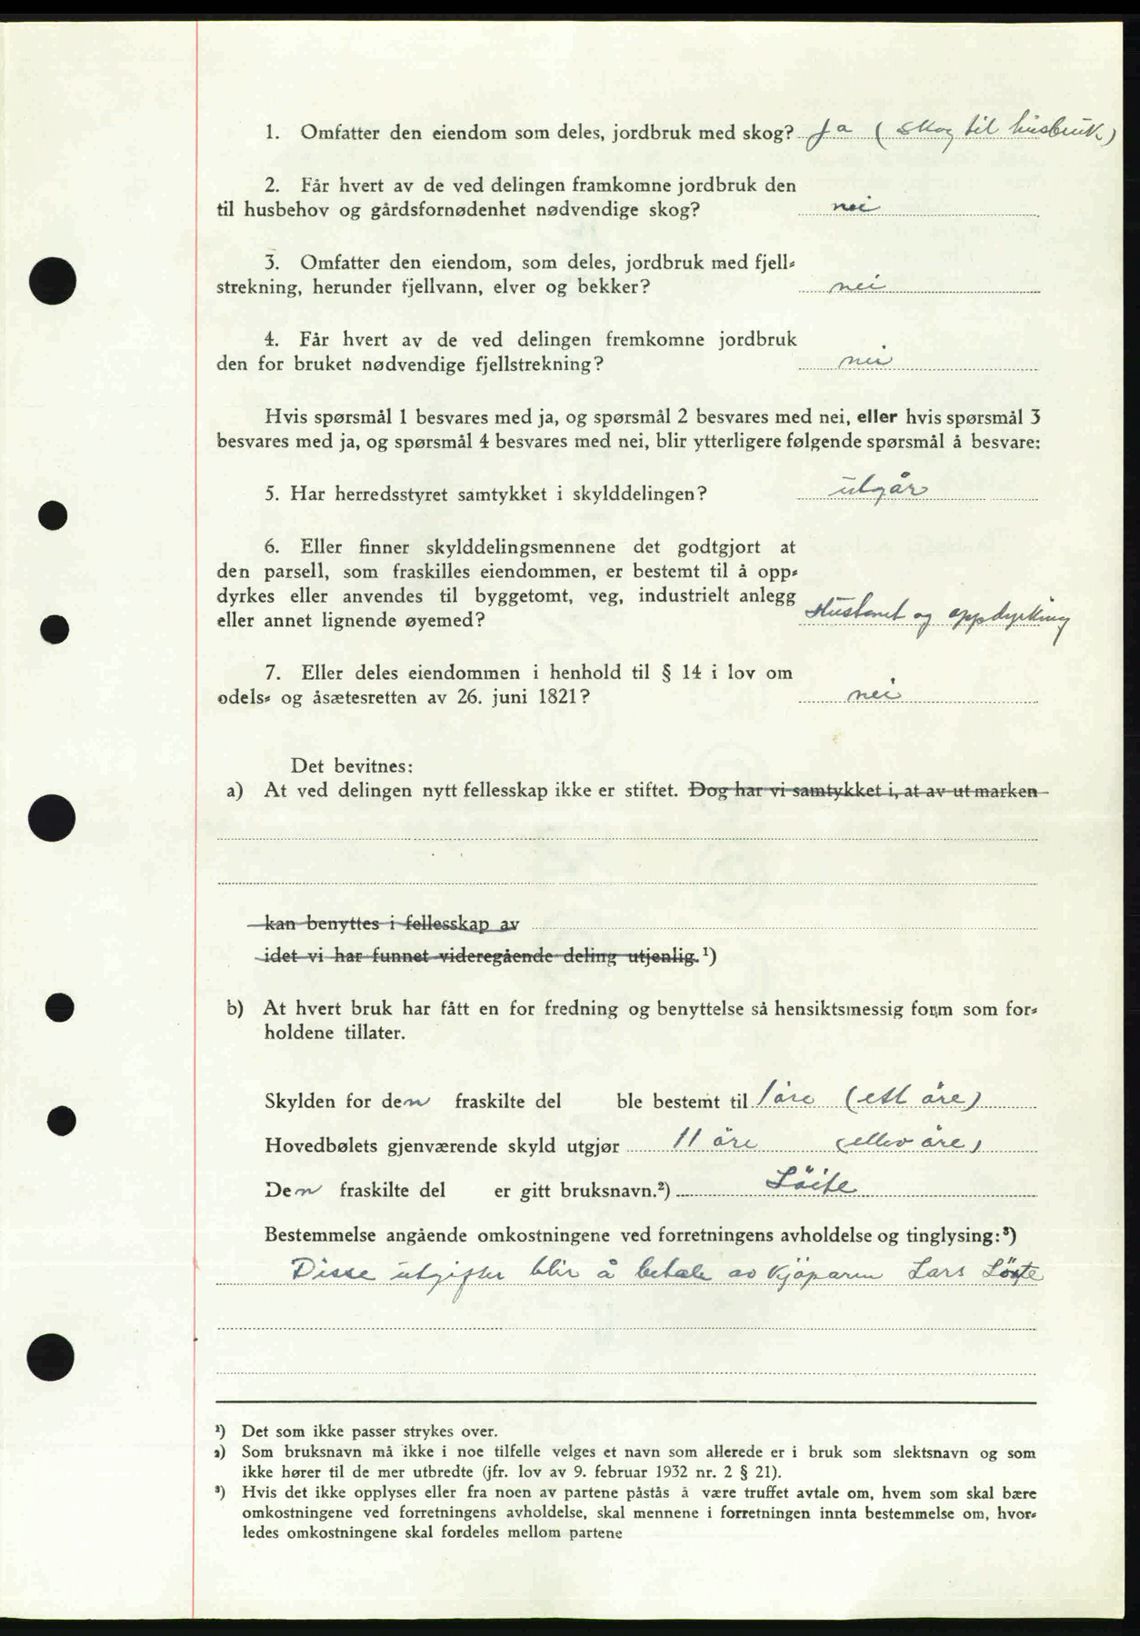 1. Omfatter den eiendom som deles, jordbruk med skog? Ja (skog til husbruk)
2. Får hvert av de ved delingen framkomne jordbruk den
til husbehov og gårdsfornødenhet nødvendige skog? nei
3. Omfatter den eiendom, som deles, jordbruk med fjell-
strekning, herunder fjellvann, elver og bekker? nei
4. Får hvert av de ved delingen fremkomne jordbruk
den for bruket nødvendige fjellstrekning? nei
Hvis spørsmål 1 besvares med ja, og spørsmål 2 besvares med nei, eller hvis spørsmål 3
besvares med ja, og spørsmål 4 besvares med nei, blir ytterligere følgende spørsmål å besvare:
5. Har herredsstyret samtykket i skylddelingen? utgår
6. Eller finner skylddelingsmennene det godtgjort at
den parsell, som fraskilles eiendommen, er bestemt til å opp-
dyrkes eller anvendes til byggetomt, veg, industrielt anlegg
eller annet lignende øyemed? Hustomt og oppdyrking
7. Eller deles eiendommen i henhold til § 14 i lov om
odels- og åsætesretten av 26. juni 1821? nei
Det bevitnes:
a) At ved delingen nytt fellesskap ikke er stiftet. Dog har vi samtykket i, at av utmarken
kan benyttes i fellesskap av
idet vi har funnet videregående deling utjenlig.¹)
b) At hvert bruk har fått en for fredning og benyttelse så hensiktsmessig form som for-
holdene tillater.
Skylden for den fraskilte del ble bestemt til 1 øre (ett öre)
Hovedbølets gjenværende skyld utgjør 11 öre (ellev öre)
Den fraskilte del er gitt bruksnavn.²) Löite
Bestemmelse angående omkostningene ved forretningens avholdelse og tinglysing:³)
Disse utgifter blir å betale av kjöparen Lars Löite
¹) Det som ikke passer strykes over.
²) Som bruksnavn må ikke i noe tilfelle velges et navn som allerede er i bruk som slektsnavn og som
ikke hører til de mer utbredte (jfr. lov av 9. februar 1932 nr. 2 § 21).
³) Hvis det ikke opplyses eller fra noen av partene påstås å være truffet avtale om, hvem som skal bære
omkostningene ved forretningens avholdelse, skal mennene i forretningen innta bestemmelse om, hvor-
ledes omkostningene skal fordeles mellom partene